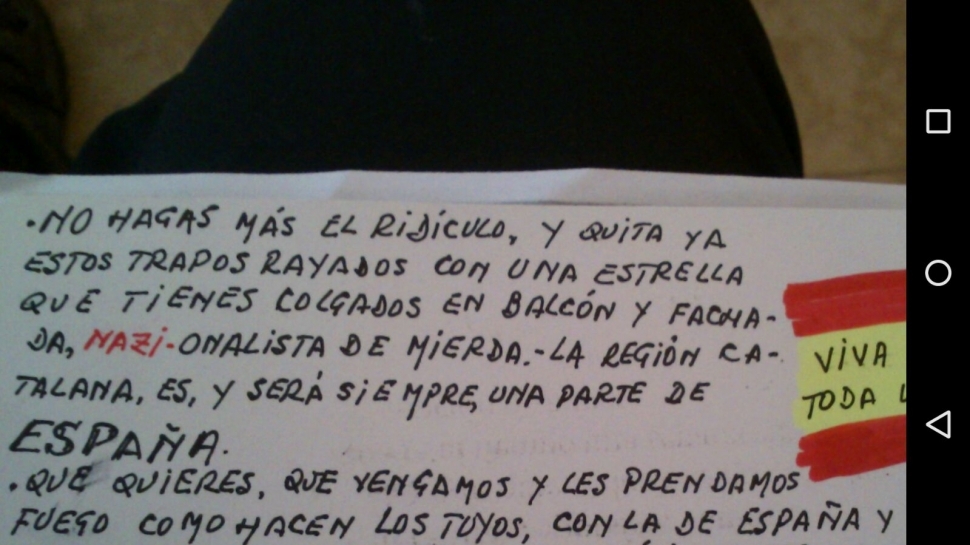 .NO HAGAS MÁS EL RIDÍCULO, Y QUITA YA
ESTOS TRAPOS RAYADOS CON UNA ESTRELLA
QUE TIENES COLGADOS EN BALCÓN Y FACHA-
DA, NAZI-ONALISTA DE MIERDA.-LA REGIÓN CA-
TALANA, ES, Y SERÁ SIEMPRE, UNA PARTE DE
ESPAÑA.
.QUE QUIERES, QUE VENGAMOS Y LES PRENDAMOS
FUEGO COMO HACEN LOS TUYOS, CON LA DE ESPAÑA Y
VIVA
TODA